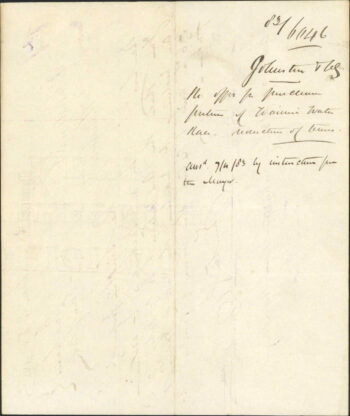 83/6046
Johnston & Co
Re offer for purchase
portion of Waimea Water
Race reduction of terms.
ansd 7/4/83 by instruction from
the Mayor